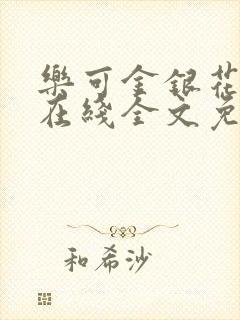 樂可金銀花
在綫全文免
和希沙